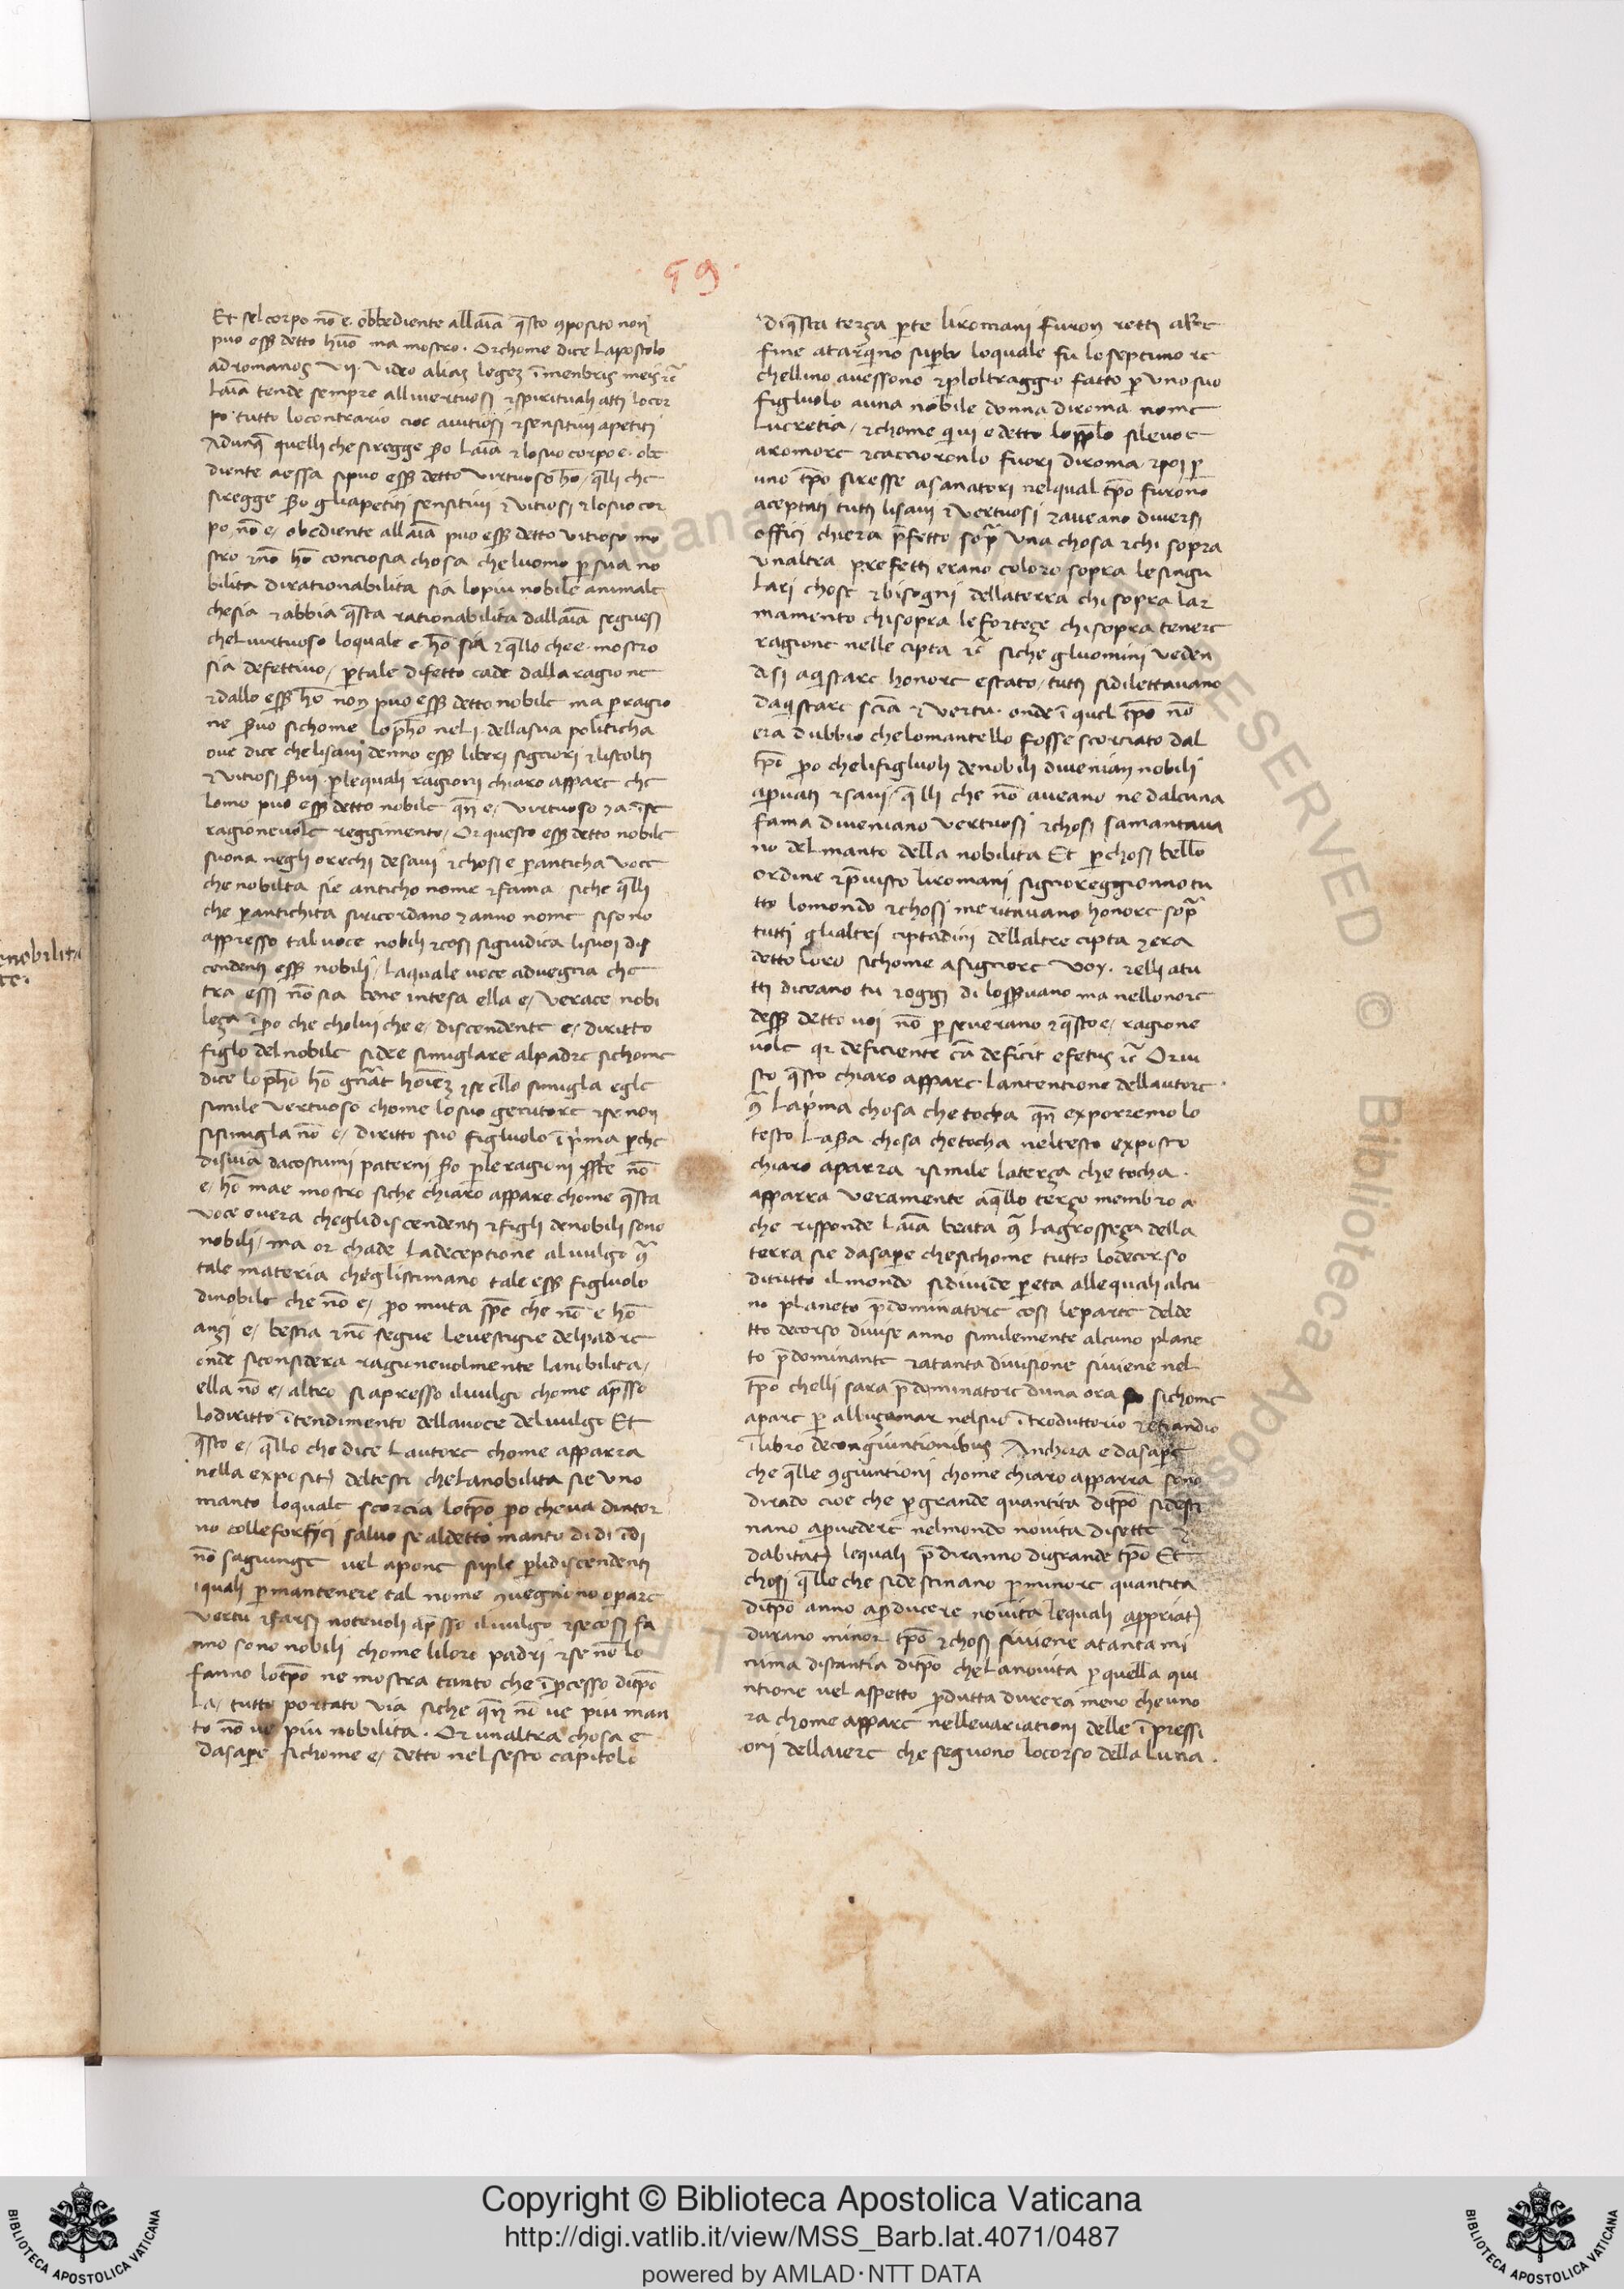 59
Et sel corpo nõ e. obbediente allaĩa q̃sto ꝯposito non
puo esß detto huõ ma mostro. Or chome dice lapostolo
ad romanos Vij. Video aliaʒ legeʒ ĩ menbris meis ⁊c̃
Laĩa tende sempre alli uertuosi ⁊ spirituali atti locor
po tutto locontrario cioe auitiosi ⁊ sensitiui apetiti
Adunq̃ quelli che siregge ꝑo laĩa ⁊ losuo corpo e. obe
diente aessa sipuo esß detto virtuoso hõ, q̃lli che
siregge ꝑo gliapetiti sensitiui ⁊ vitiosi ⁊ losuo cor
po, nõ e, obediente allaĩa puo esß detto vitioso mo
stro ⁊ nõ hõ conciosia chosa che luomo ꝑ sua no
bilita dirationabilita sia lopiu nobile animale
chesia ⁊ abbia q̃sta rationabilita dallaĩa seguesi
chel uirtuoso loquale e hõ sia ⁊ q̃llo che e. mostro
sia defettiuo, ꝑ tale difetto cade dalla ragione
⁊ dallo esß hõ non puo esß detto nobile ma ꝑ ragio
ne ßuo sichome lo pho nel i della sua politicha
oue dice che lisaui denno esß liberi signiori ⁊ listolti
⁊ vitiosi ßui ꝑ lequali ragioni chiaro appare che
lomo puo esß detto nobile qñ e, virtuoso ⁊ a ĩse
ragioneuole reggimento, Or questo esß detto nobile
suona negli orechi desaui ⁊ chosi e ꝑ anticha voce
che nobilta sie anticho nome ⁊ fama siche q̃lli
che ꝑ antichita siricordano ⁊ anno nome sisono
appresso tal uoce nobili ⁊ cosi sigiudica lisuoi dis
cendenti esß nobili, laquale uoce aduegnia che
tra essi nõ sia bene intesa ella e, verace nobi
leza ĩ ꝑo che cholui che e, discendente e, diritto
figlo del nobile sidee simigliare alpadre sichome
dice lo pho hõ gñat hoĩeʒ ⁊ se ello simigla egle
simile vertuoso chome losuo genitore ⁊ se non
sisimigla nõ e, diritto suo figluolo ĩ p̃ma ꝑche
disuia dacostumi paterni ꝑo ꝑ le ragioni nõ
e, hõ ma e mostro siche chiaro appare chome q̃sta
voce e uera che glidiscendenti ⁊ figli denobili sono
nobili, ma or chade la deceptione al uulgo
tale materia che glistimano tale esß figluolo
dinobile che nõ e, ꝑo muta sp̃e che nõ e hõ
anzi e, bestia ⁊ nõ segue leuestigie delpadre
onde siconsidera ragioneuolmente lanobilita,
ella nõ e, altro si apresso iluulgo chome ap̃sso
lodiritto ĩtendimento dellauoce deluulgo Et
q̃sto e, q̃llo che dice lautore chome apparra
nella exposit) deltesti che lanobilita sie uno
manto loquale scorcia lotꝑo ꝑo che ua dintor
no colle forfici saluo se aldetto manto di di ĩ di
nõ sagiunge uel apone suple ꝑ lidiscendenti
iquali ꝑ mantenere tal nome operare
vertu ⁊ farsi noteuoli ap̃sso iluulgo ⁊ se cosi fa
nno sono nobili chome liloro padri ⁊ se nõ lo
fanno lotꝑo ne mostra tanto che ĩ ꝑcesso ditꝑo
la, tutto portato via siche qñ nõ ue piu man
to nõ ue piu nobilita. Or unaltra chosa e
dasape sichome e, detto nel sesto capitolo
Diq̃sta terza parte liromani furon retti a Re
fine atarqino supbo loquale fu loseptimo re
chellino auessono ⁊ ꝑ loltraggio fatto ꝑ uno suo
figluolo auna nobile donna diroma nome
Lucretia, ⁊ chome qui e detto lopplo sileuo e
aromore ⁊ caccioronlo fuori diroma ⁊ poi ꝑ
uno tꝑo siresse asanatori nelqual tꝑo furono
aceptati tutti lisaui ⁊ vertuosi ⁊ aueano diuersi
offici chiera p̃fetto sop̃ una chosa ⁊ chi sopra
unaltra prefetti erano coloro sopra lesingu
lari chose ⁊ bisogni dellaterra chi sopra lar
mamento chi sopra lefortege chi sopra tenere
ragione nelle cipta ⁊c̃ siche gluomini veden
disi aqistare honore estato, tutti sidilettauano
daqistare scĩa ⁊ vertu. onde ĩ quel tꝑo nõ
era dubbio che lomantello fosse scorciato dal
tꝑo ꝑo che lifigluoli denobili diuenian nobili
apuati ⁊ saui, q̃lli che nõ aueano ne dalcuna
fama diueniano vertuosi ⁊ chosi samantaua
no del manto della nobilita Et ꝑ chosi bello
ordine ⁊ p̃uisto liromani signoreggionno tu
tto lomondo ⁊ chosi meritauano honore sop̃
tutti glialtri ciptadini dellaltre cipta ⁊ era
detto loro sichome a signore Voy. ⁊ elli atu
tti diceano tu ⁊ oggi di losßuano ma nellonore
desß detto uoi nõ ꝑ seuerano ⁊ q̃sto e, ragione
uole qr deficiente cã deficit efetus ⁊c̃ Or ui
sto q̃sto chiaro appare lantentione dellautore.
Lap̃ma chosa che tocha qñ exporremo lo
testo chosa che tocha neltesto exposto
chiaro aparra ⁊ simile laterza che tocha.
apparra veramente aq̃llo terzo membro a
che risponde laĩa beata lagrossezza della
terra sie dasape che sichome tutto lodecorso
ditutto il mondo sidiuide ꝑ eta allequali alcu
no planeto p̃dominatore cosi leparte delde
tto decorso diuise anno similemente alcuno plane
to p̃dominante ⁊ atanta diuisione siuiene nel
tꝑo chelli sara p̃dominatore duna ora sichome
apare ꝑ albuzamar nelsuo ĩtroduttorio ⁊ etiandio
ĩ libro decongiuntionibus Anchora e dasape
che q̃lle ꝯgiuntioni chome chiaro apparra sono
dirado cioe che ꝑ grande quantita ditꝑo sidesti
nano aprouedere nelmondo nouita disette ⁊
dabitat) lequali p̃diranno digrande tꝑo Et
chosi q̃lle che sidestinano ꝑ minore quantita
ditꝑo anno apducere nouita lequali appriat)
durano minor tꝑo ⁊ chosi siuiene atanta mi
nima distantia ditꝑo che lanouita ꝑ quella qui
ntione uel aspetto ꝓdutta durera meno che uno
ra chome appare nelleuariationi delle ĩpressi
oni dellaiere che seguono locorso della luna.
nobilita
te.
Copyright © Biblioteca Apostolica Vaticana
http://digi.vatlib.it/view/MSS_Barb.lat.4071/0487
powered by AMLAD·NTT DATA
BIBLIOTECA APOSTOLICA VATICANA
BIBLIOTECA APOSTOLICA VATICANA